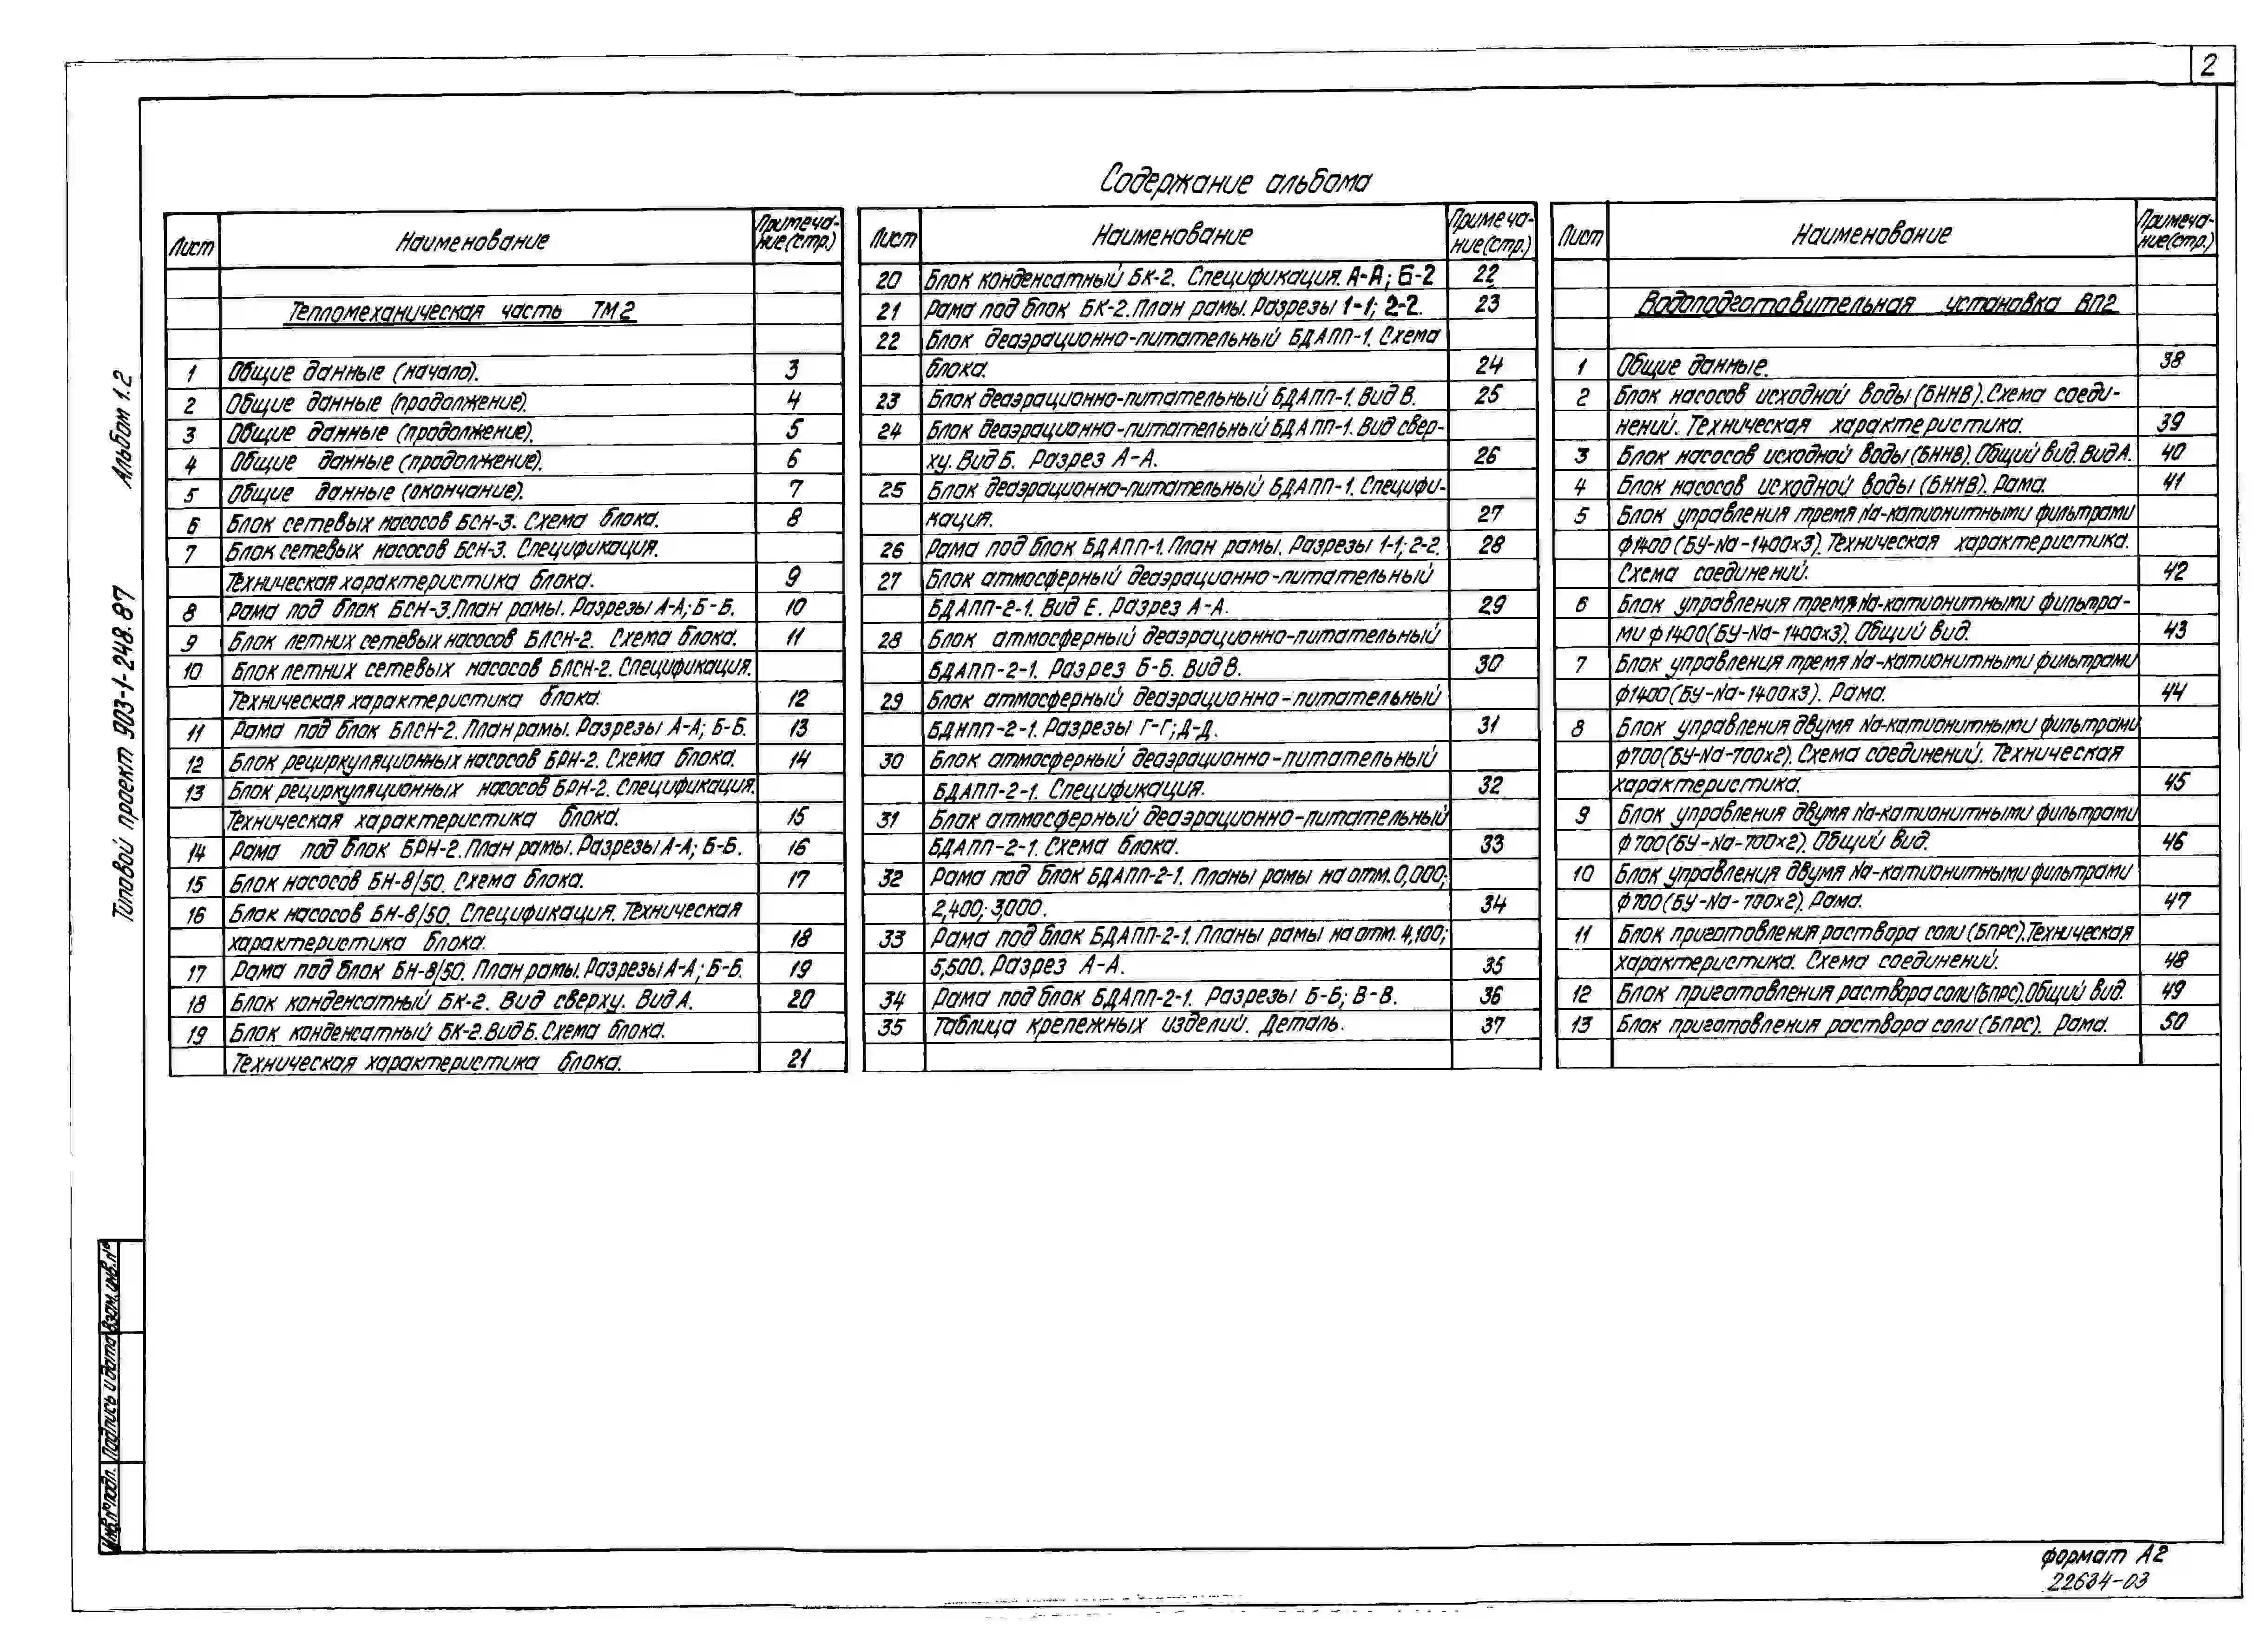 2
Содержание альбома
Лист Наименование Примеча-
ние(стр.)
Тепломеханическая часть ТМ2
1 Общие данные (начало). 3
2 Общие данные (продолжение). 4
3 Общие данные (продолжение). 5
4 Общие данные (продолжение). 6
5 Общие данные (окончание). 7
6 Блок сетевых насосов БСН-3. Схема блока. 8
7 Блок сетевых насосов БСН-3. Спецификация.
Техническая характеристика блока. 9
8 Рама под блок БСН-3. План рамы. Разрезы А-А; Б-Б. 10
9 Блок летних сетевых насосов БЛСН-2. Схема блока. 11
10 Блок летних сетевых насосов БЛСН-2. Спецификация.
Техническая характеристика блока. 12
11 Рама под блок БЛСН-2. План рамы. Разрезы А-А; Б-Б. 13
12 Блок рециркуляционных насосов БРН-2. Схема блока. 14
13 Блок рециркуляционных насосов БРН-2. Спецификация.
Техническая характеристика блока. 15
14 Рама под блок БРН-2. План рамы. Разрезы А-А; Б-Б. 16
15 Блок насосов БН-8/50. Схема блока. 17
16 Блок насосов БН-8/50. Спецификация. Техническая
характеристика блока. 18
17 Рама под блок БН-8/50. План рамы. Разрезы А-А; Б-Б. 19
18 Блок конденсатный БК-2. Вид сверху. Вид А. 20
19 Блок конденсатный БК-2. Вид Б. Схема блока.
Техническая характеристика блока. 21
Лист Наименование Примеча-
ние(стр.)
20 Блок конденсатный БК-2. Спецификация. А-А; Б-2 22
21 Рама под блок БК-2. План рамы. Разрезы 1-1; 2-2. 23
22 Блок деаэрационно-питательный БДАПП-1. Схема
блока. 24
23 Блок деаэрационно-питательный БДАПП-1. Вид В. 25
24 Блок деаэрационно-питательный БДАПП-1. Вид свер-
ху. Вид Б. Разрез А-А. 26
25 Блок деаэрационно-питательный БДАПП-1. Специфи-
кация. 27
26 Рама под блок БДАПП-1. План рамы. Разрезы 1-1; 2-2. 28
27 Блок атмосферный деаэрационно-питательный
БДАПП-2-1. Вид Е. Разрез А-А. 29
28 Блок атмосферный деаэрационно-питательный
БДАПП-2-1. Разрез Б-Б. Вид В. 30
29 Блок атмосферный деаэрационно-питательный
БДНПП-2-1. Разрезы Г-Г; Д-Д. 31
30 Блок атмосферный деаэрационно-питательный
БДАПП-2-1. Спецификация. 32
31 Блок атмосферный деаэрационно-питательный
БДАПП-2-1. Схема блока. 33
32 Рама под блок БДАПП-2-1. Планы рамы на отм. 0,000;
2,400; 3,000. 34
33 Рама под блок БДАПП-2-1. Планы рамы на отм. 4,100;
5,500. Разрез А-А. 35
34 Рама под блок БДАПП-2-1. Разрезы Б-Б; В-В. 36
35 Таблица крепежных изделий. Деталь. 37
Лист Наименование Примеча-
ние(стр.)
Водоподготовительная установка ВП2
1 Общие данные. 38
2 Блок насосов исходной воды (БННВ). Схема соеди-
нений. Техническая характеристика. 39
3 Блок насосов исходной воды (БННВ). Общий вид. Вид А. 40
4 Блок насосов исходной воды (БННВ). Рама. 41
5 Блок управления тремя Na-катионитными фильтрами
ф1400 (БУ-Na-1400х3). Техническая характеристика.
Схема соединений. 42
6 Блок управления тремя Na-катионитными фильтра-
ми ф1400 (БУ-Na-1400х3). Общий вид. 43
7 Блок управления тремя Na-катионитными фильтрами
ф1400 (БУ-Na-1400х3). Рама. 44
8 Блок управления двумя Na-катионитными фильтрами
ф700 (БУ-Na-700х2). Схема соединений. Техническая
характеристика. 45
9 Блок управления двумя Na-катионитными фильтрами
ф700 (БУ-Na-700х2). Общий вид. 46
10 Блок управления двумя Na-катионитными фильтрами
ф700 (БУ-Na-700х2). Рама. 47
11 Блок приготовления раствора соли (БПРС). Техническая
характеристика. Схема соединений. 48
12 Блок приготовления раствора соли (БПРС). Общий вид. 49
13 Блок приготовления раствора соли (БПРС). Рама. 50
Типовой проект 903-1-248.87 Альбом 1.2
Инв.№подл. Подпись и дата Взам.инв.№
формат А2
22634-03